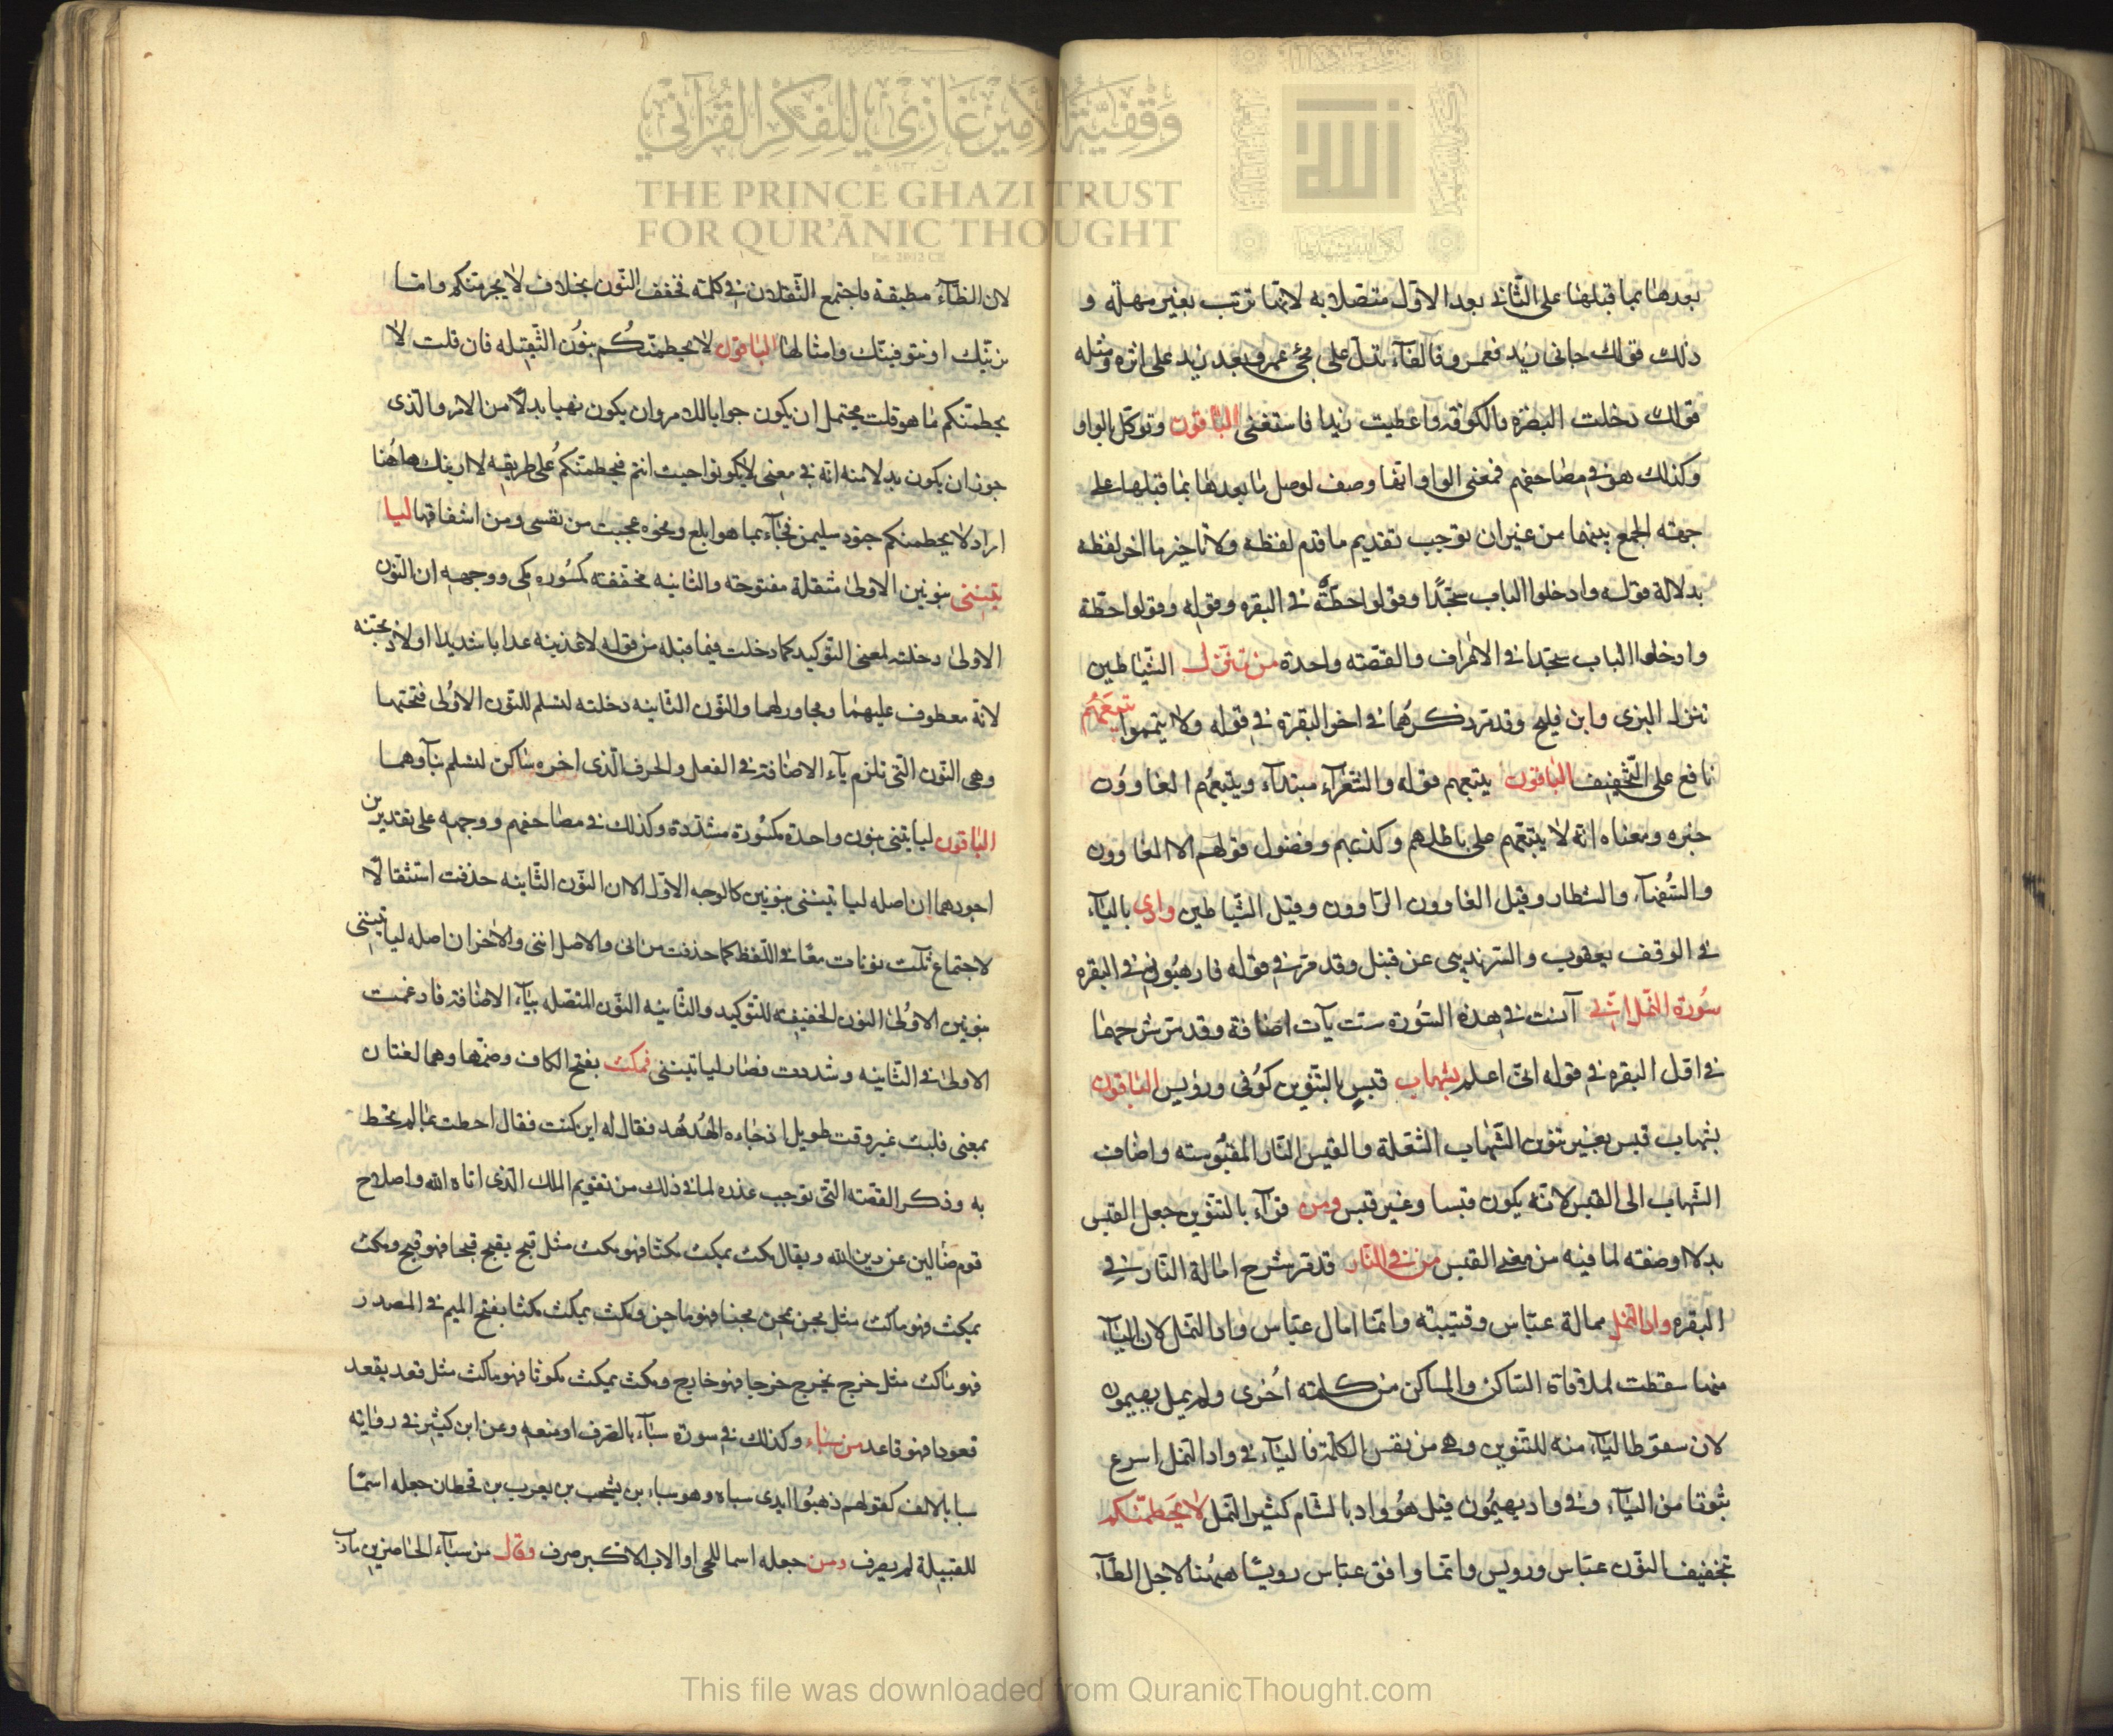 بعدها بما قبلها على الثاني بعد الاول متصلا به لانها ترتب بغير مهلة و
ذلك قولك جاني زيد فعمرو فالفآء تدل على مجئ عمرو بعد زيد على اثره ومثله
قولك دخلت البصرة فالكوفة واعطيت زيدا فاستغنى الباقون وتوكل بالواو
وكذلك هو في مصاحفهم فمعنى الواو انها وصف لوصل ما بعدها بما قبلها على
جهته الجمع بينهما من غير ان توجب تقديم ما قدم لفظه ولا تاخير ما اخر لفظه
بدلالة قوله وادخلوا الباب سجّدًا وقولوا حطّة في البقره وقوله وقولوا حطة
وادخلوا الباب سجّدا في الاعراف والقصّته واحدة من تنزل الشّياطين
تنزل البزى وابن فليح وقد مر ذكرهما في اخر البقرة في قوله ولا تيمموا يتبعهُم
نافع على التّخفيف الباقون يتبعهم قوله والشعرآء مبتدآء ويتبعهُم الغاوُون
خبره ومعناه انه لا يتبعهم على باطلهم وكذبهم وفضول قولهم الا الغاوون
والسُّفهآء والشطار وقيل الغاوون الرّاوون وقيل الشّياطين وادى باليآء
في الوقف يعقوب والسرنديبى عن قنبل وقد مرّ في قوله فارهبُون في البقره
سُورة النّمل انّى آنست في هذه السُّورة ست يآت اضافة وقد مرّ شرحها
في اوّل البقره في قوله انّى اعلم بشهاب قبسٍ بالتّنوين كوُفى ورويس الباقون
بشهاب قبس بغير تنوين الشّهاب الشعلة والقبس النّار المقبُوسته واضافت
الشّهاب الى القبس لانّه يكون قبسا وغير قبس ومن قرآء بالتّنوين جعل القبس
بدلا اوصفته لما فيه من معنى القبس من في النّار قد مرّ شرح امالة النّار في
البقره واد النّمل ممالة عبّاس وقتيبته وانّما امال عبّاس واد النّمل لان اليآء
منها سقطت لملاقاة السّاكن والساكن من كلمته اُخرى ولم يمل يهيمون
لان سقوط اليآء منه للتنوين وهى من نفس الكلمة فاليآء في واد النّمل اسرع
ثبوتا من اليآء وفي واد يهيمُون قيل هوُ واد بالشام كثير النّمل لا يَحطمنّكم
بتخفيف النّون عبّاس ورويس وانّما وافق عبّاس رويسًا ههُنا لاجل الطّآء
لان الطآء مطبقة فاجتمع الثّقلان في كلمة فخفف النّون بخلاف لا يجرمنكم واما
نرينّك او نتوفينّك وامثالها الباقون لا يحطمنّكُم بنوُن الثّقيله فان قلت لا
يحطمنّكم ما هو قلت يحتمل ان يكون جوابا للامر وان يكون نهيا بدلًا من الامر والذى
جوز ان يكون بدلا منه انه في معنى لا تكونوا حيث انتم فيحطمنّكم على طريقه لا ارينّك هاهُنا
اراد لا يحطمنكم جنود سليمن فجآء بما هو ابلغ ونحوه عجبت من نفسى ومن اشفاقها ليا
تينّنى بنونين الاولى مثقلة مفتوحة والثانيه مخففته مكسُوره مكى ووجهه ان النّون
الاولى دخلته لمعنى التوكيد كما دخلت فيما قبله من قوله لاعذبنه عذابا شديدا او لاذبحنه
لانّه معطوف عليهما ومجاور لهما والنّون الثّانيه دخلته لتسلم للنّون الاوُلى فتحتها
وهى النّون الّتى تلزم يآء الاضافة في الفعل والحرف الّذى اخره ساكن لتسلم بنآوهما
الباقون لياتينى بنون واحدة مكسُورة مشدّدة وكذلك في مصاحفهم ووجهه على تقديرين
اجودهما ان اصله لياتينّنى بنونين كالوجه الاوّل الان النّون الثّانيه حذفت استثقالا
لاجتماع ثلث نونات معًا في اللّفظ كما حذفت من انى والاصل اننى والاخر ان اصله لياتيننى
بنونين الاوُلى النون الخفيفه للتّوكيد والثّانيه النّون المتصله بيآء الاضافة فادغمت
الاولى في الثّانيه وشددت فصار لياتينى فمكث بفتح الكاف وضمّها وهما لغتان
بمعنى فلبث غير وقت طويل اذ جاءه الهُدهُد فقال له اين كنت فقال احطت بما لم تحط
به وذكر القصّته التّى توجب عذره لما في ذلك من تقويم الملك الّذى اتاه الله واصلاح
قوم ضالين عن دين الله ويقال مكث يمكث مكثا فهو مكث مثل قبح يقبح قبحا فهو قبح ومكث
يمكث فهو ماكث مثل مجن يمجن مجنا فهو ماجن ومكث يمكث مكثا بفتح الميم في المصدر
فهو ماكث مثل خرج يخرج خرجا فهو خارج ومكث يمكث مكوثا فهو ماكث مثل قعد يقعد
قعودا فهو قاعد من سباء وكذلك في سورة سبآء بالصّرف او منعه وعن ابن كثير في روايته
سبا بالالف كقولهم ذهبُوا ايدى سباه وهو سباء بن يشجب بن يعرب بن قحطان جعله اسمًا
للقبيلة لم يصرف ومن جعله اسما للحى او الاب الاكبر صرف وقال من سبآء الحاضرين مارب
وَقْفِيَّةُ الأَمِيْرِ غَازِي لِلْفِكْرِ القُرْآنِي
THE PRINCE GHAZI TRUST
FOR QUR'ĀNIC THOUGHT
Est. 2012 CE
This file was downloaded from QuranicThought.com